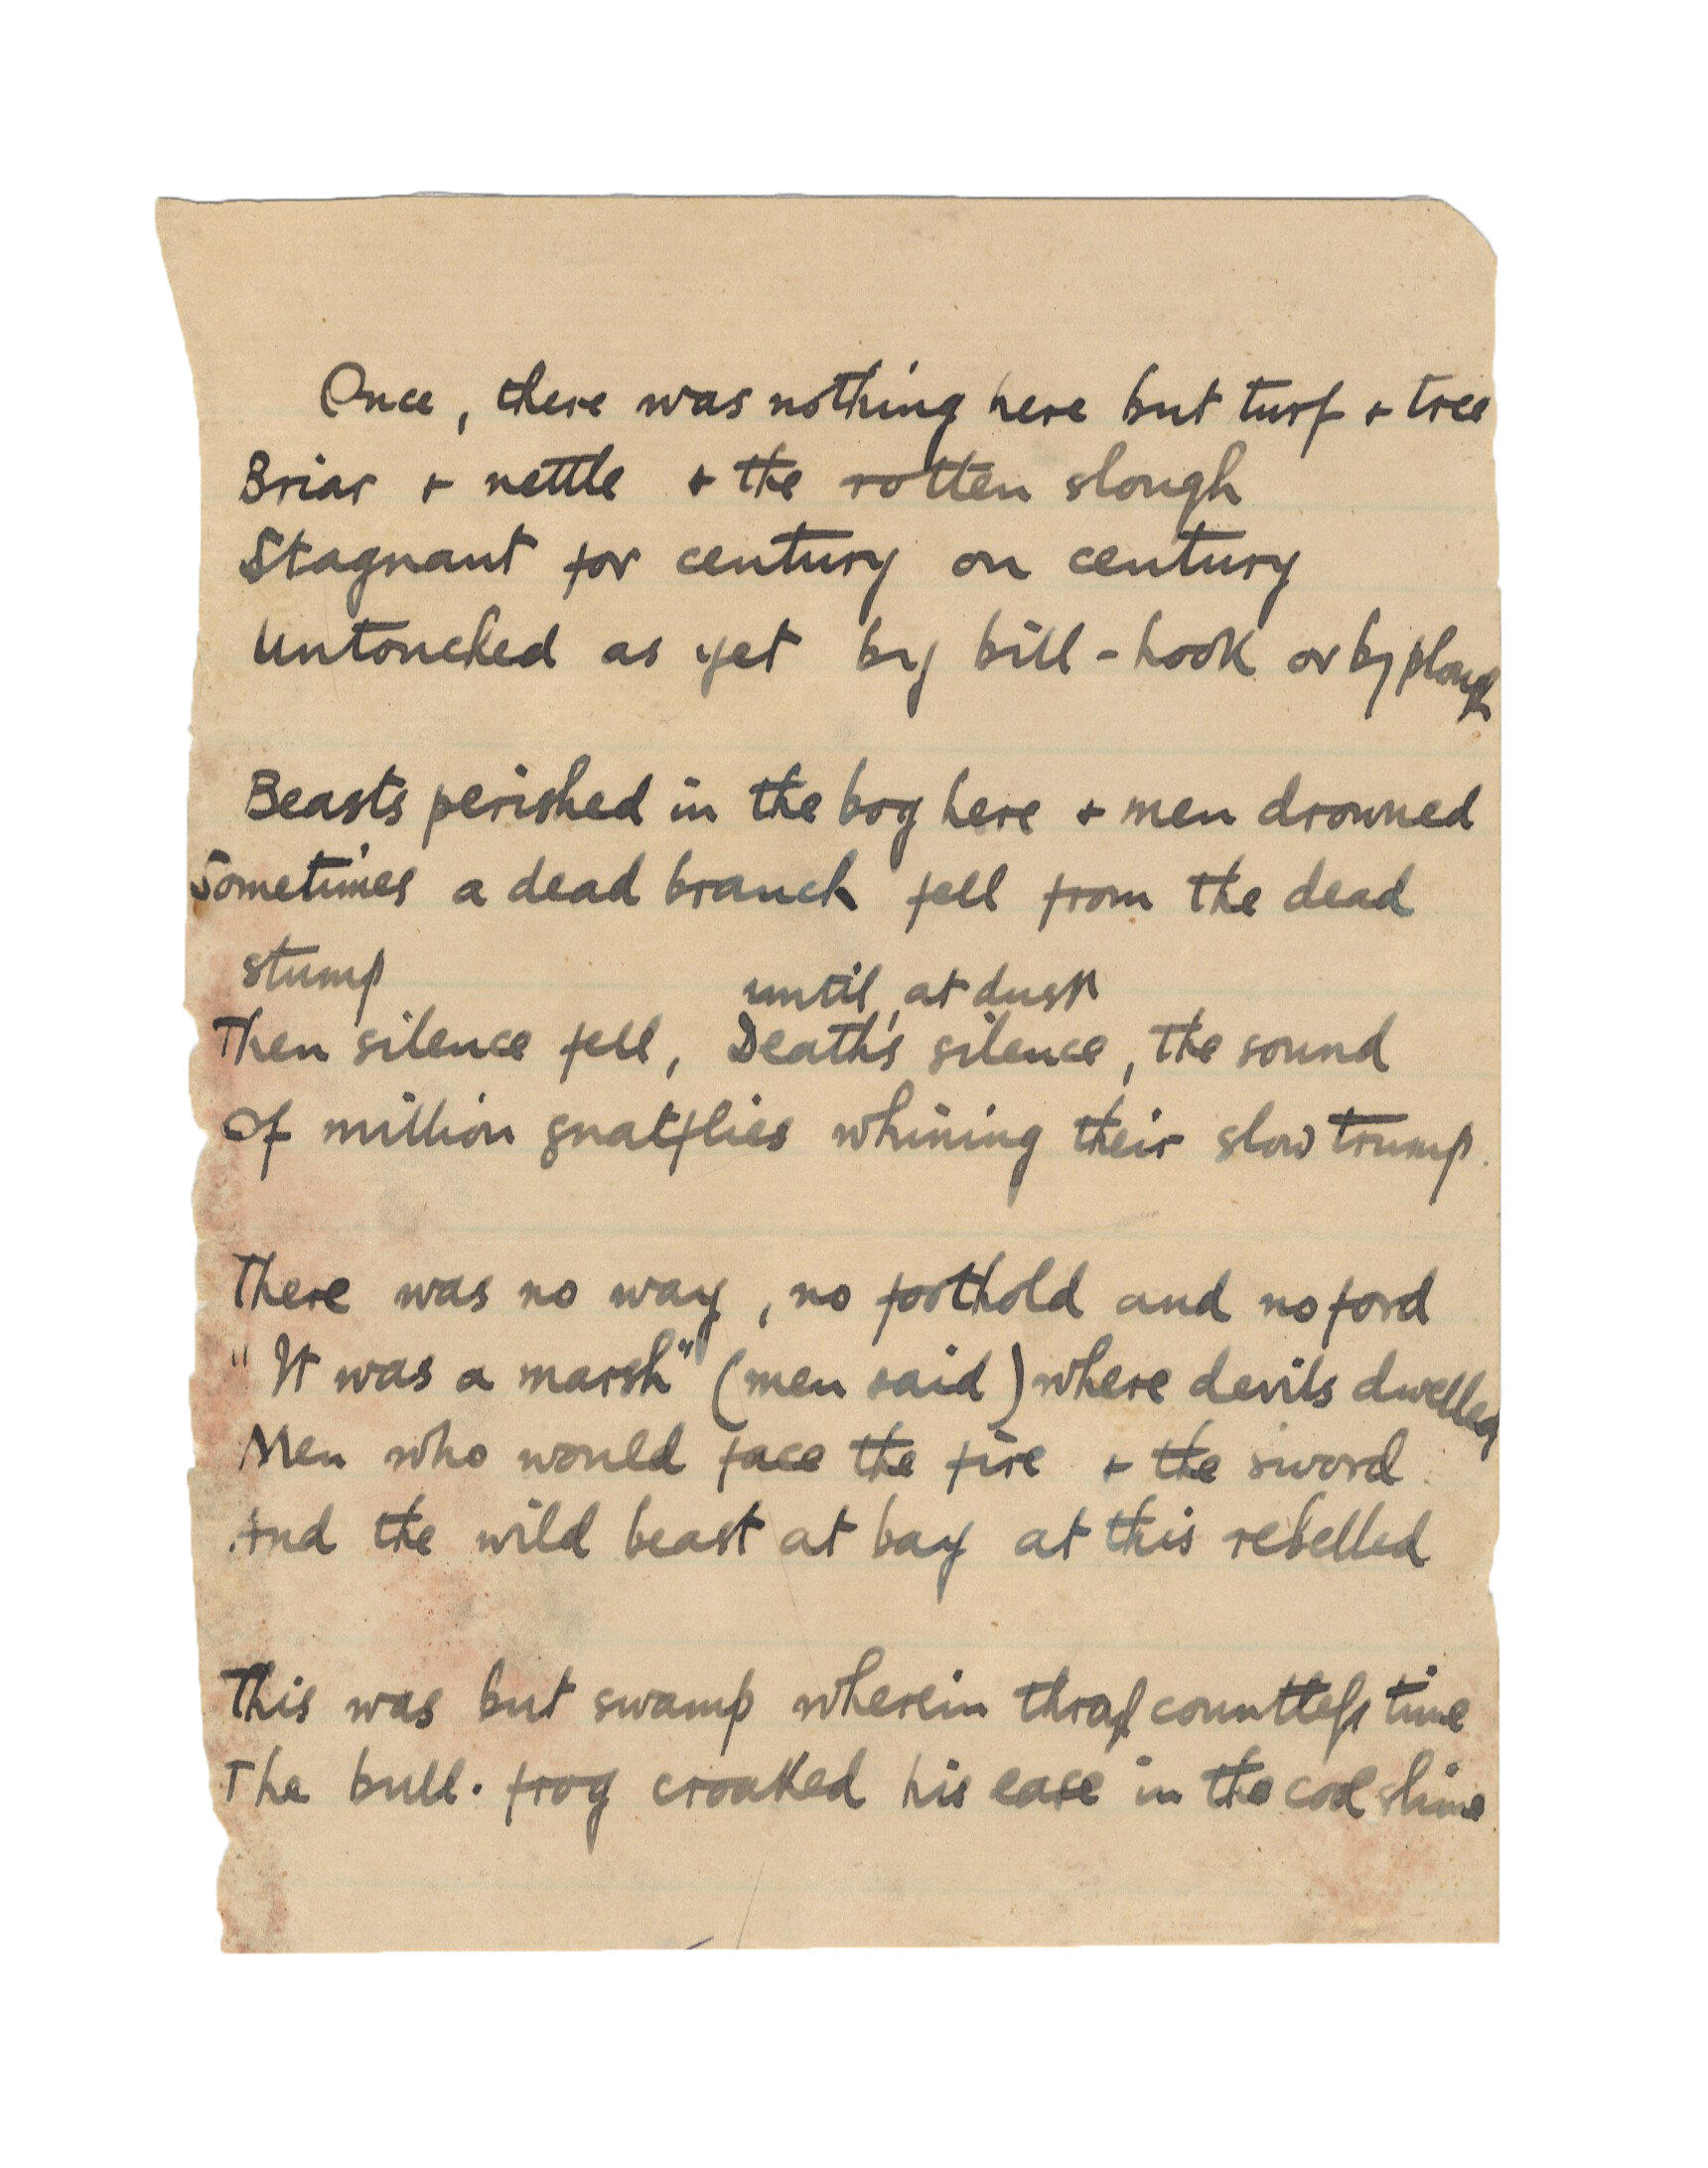 Once, there was nothing here but turf + tree
Briar + nettle + the rotten slough
Stagnant for century on century
Untouched as yet by bill-hook or by plough
Beasts perished in the bog here + men drowned
Sometimes a dead branch fell from the dead
stump
until, at dusk
Then silence fell, Death's silence, the sound
Of million gnatflies whining their slow trump.
There was no way, no foothold and no ford
"It was a marsh" (men said) where devils dwelled
Men who would face the fire + the sword
And the wild beast at bay at this rebelled
This was but swamp wherein countless time
The bull-frog croaked his ease in the cool slime